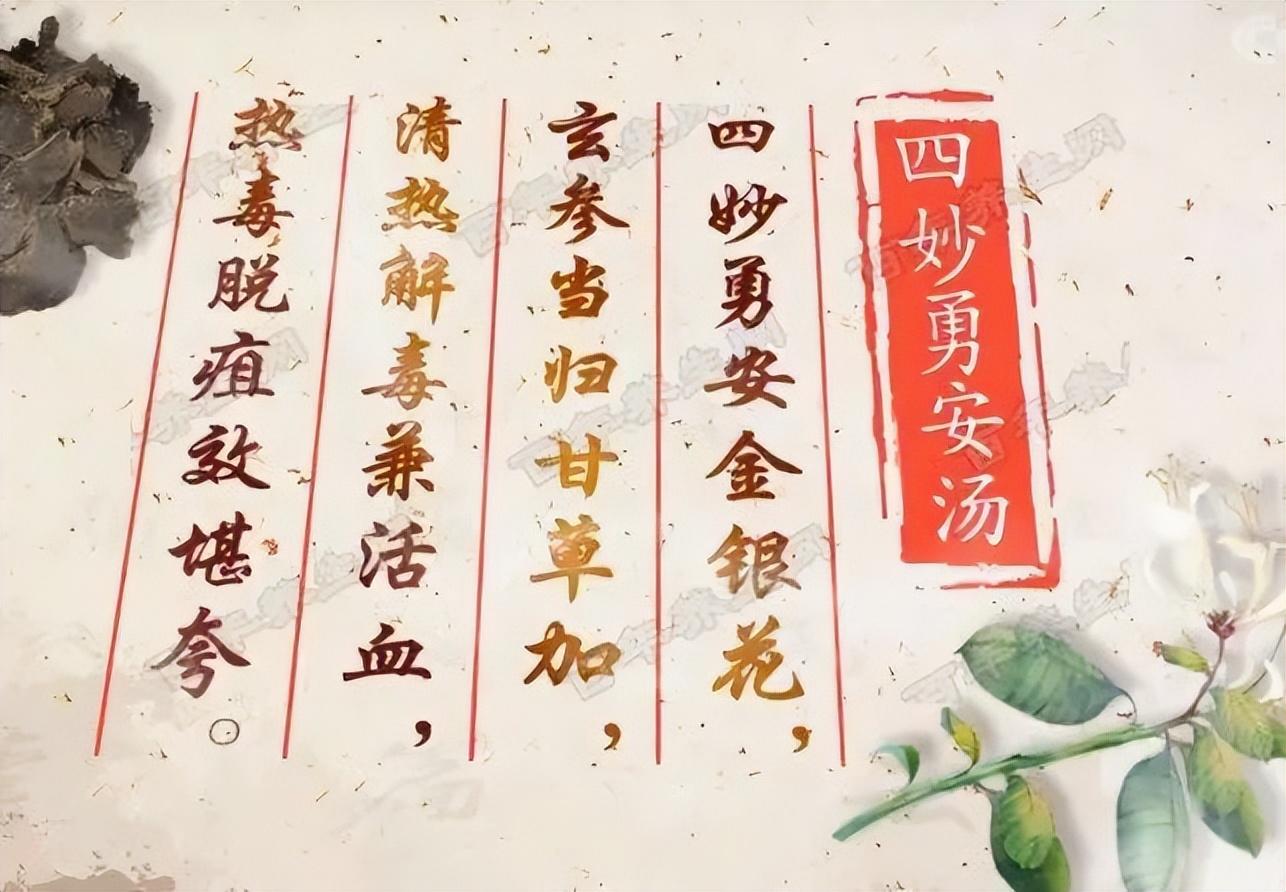 四妙勇安汤
四妙勇安金银花，
玄参当归甘草加，
清热解毒兼活血，
热毒脱疽效堪夸。